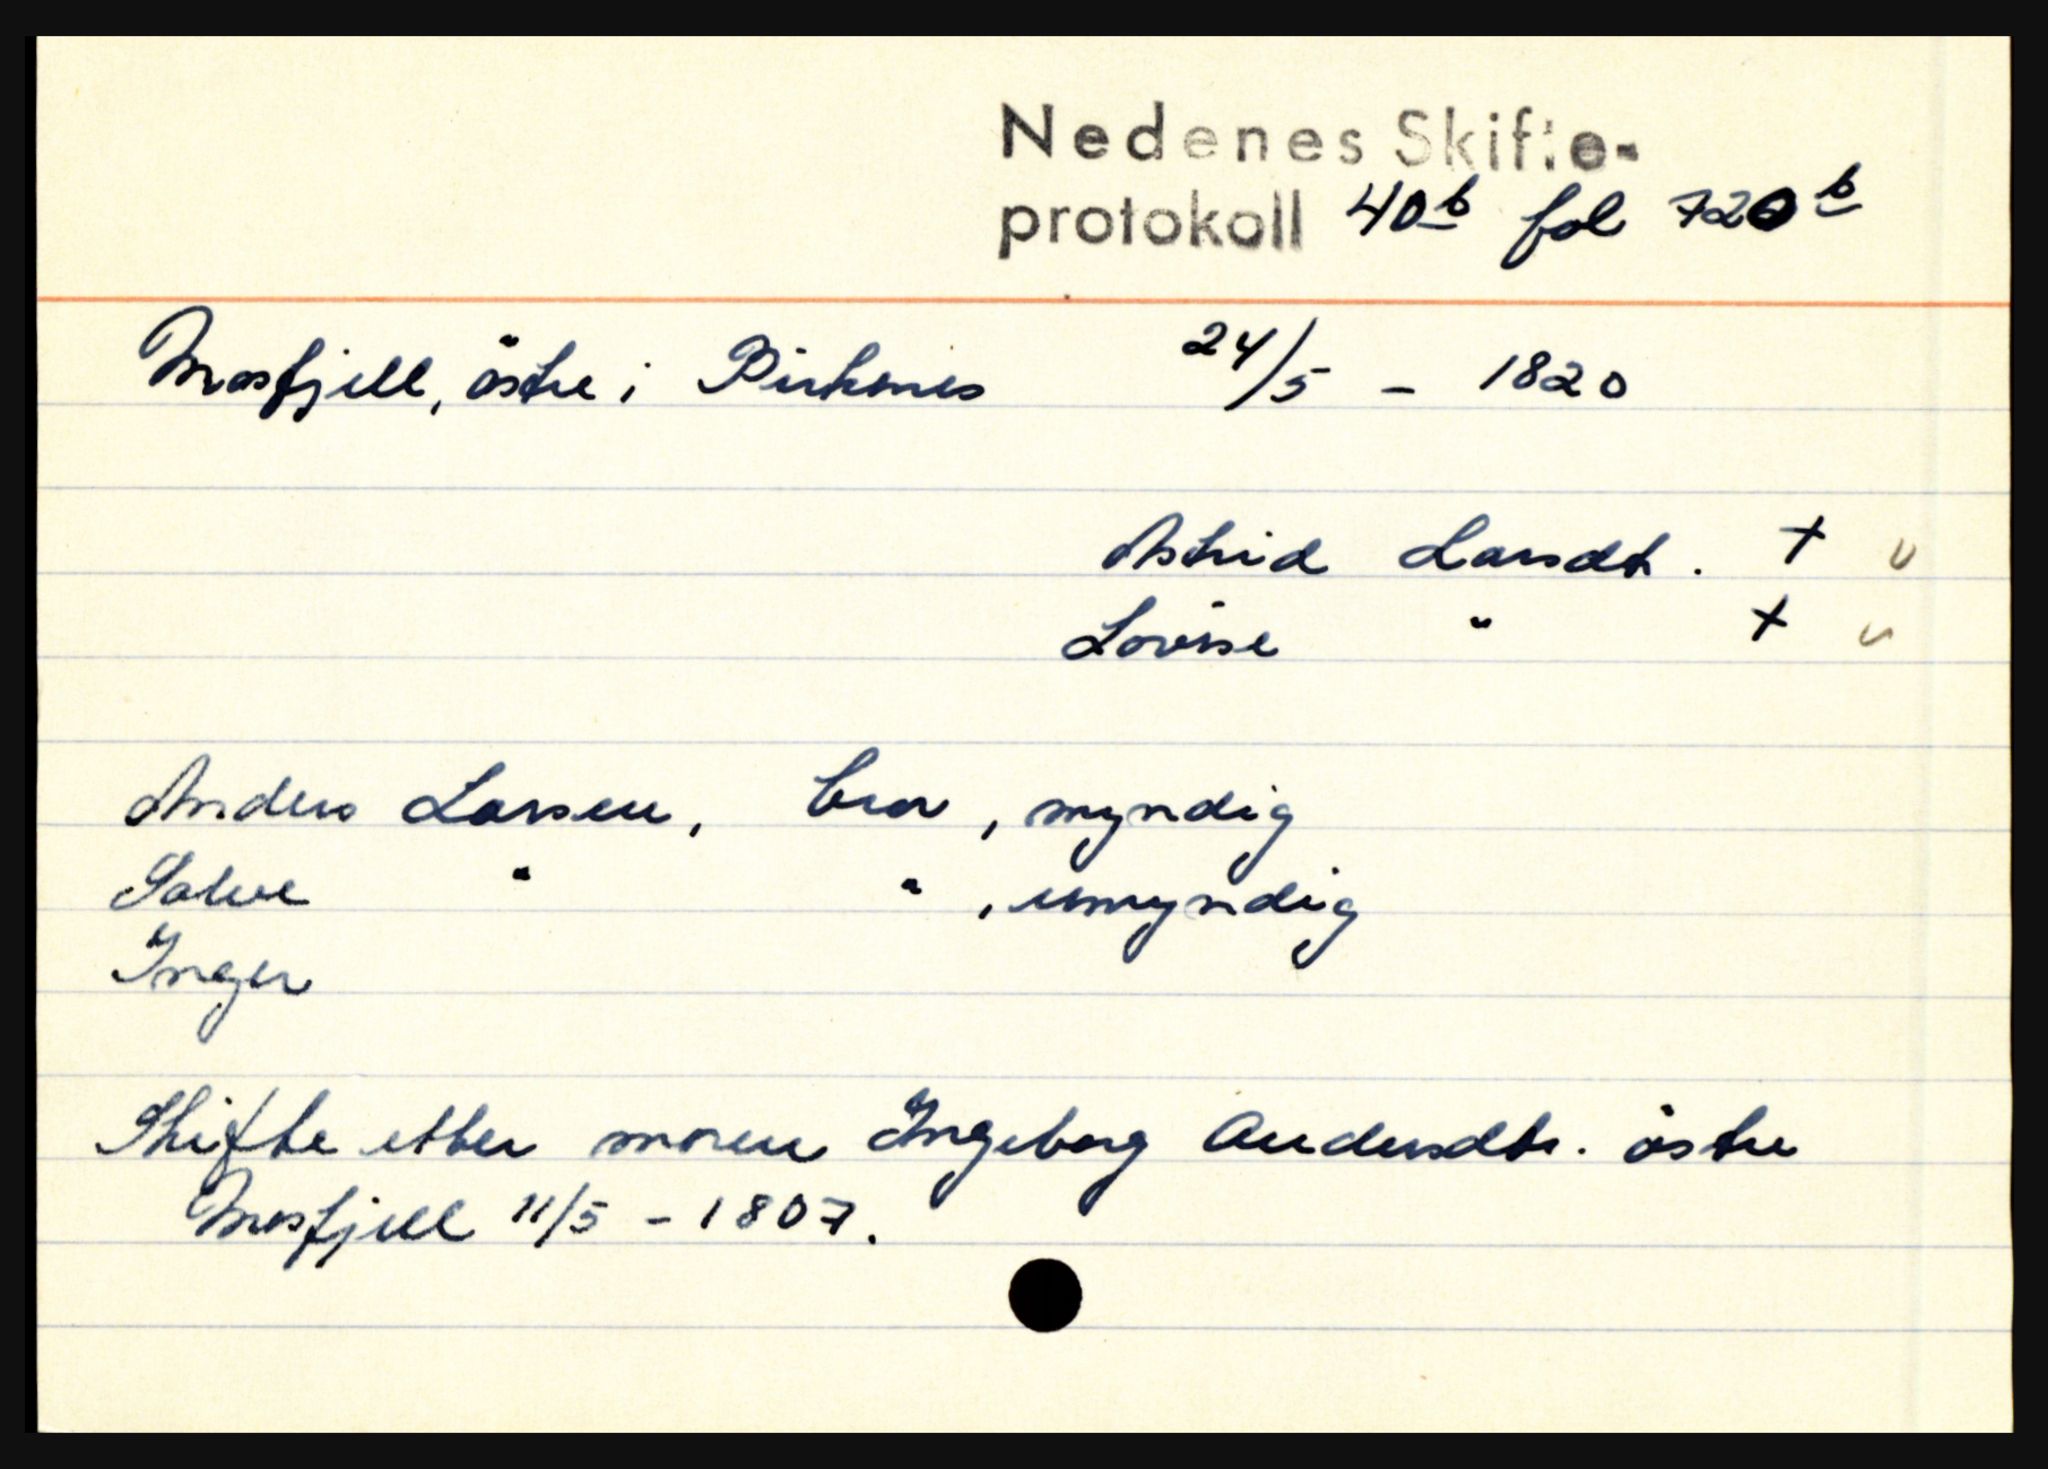 Nedenes Skifte-
protokoll 40b fol 720b
Mosfjell, östre i Birkenes 24/5 - 1820
Astrid Larsdt. + v
Lovise " + v
Anders Larsen, bror, myndig
Salve " " , umyndig
Inger
Skifte etter moren Ingeborg Andersdtr. östre
Mosfjell 11/5 - 1807.